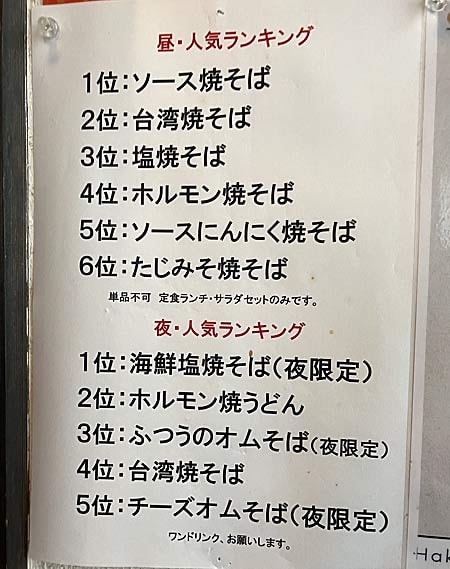 昼・人気ランキング
1位:ソース焼そば
2位:台湾焼そば
3位:塩焼そば
4位:ホルモン焼そば
5位:ソースにんにく焼そば
6位:たじみそ焼そば
単品不可 定食ランチ・サラダセットのみです。
夜・人気ランキング
1位:海鮮塩焼そば(夜限定)
2位:ホルモン焼うどん
3位:ふつうのオムそば(夜限定)
4位:台湾焼そば
5位:チーズオムそば(夜限定)
ワンドリンク、お願いします。
Hak